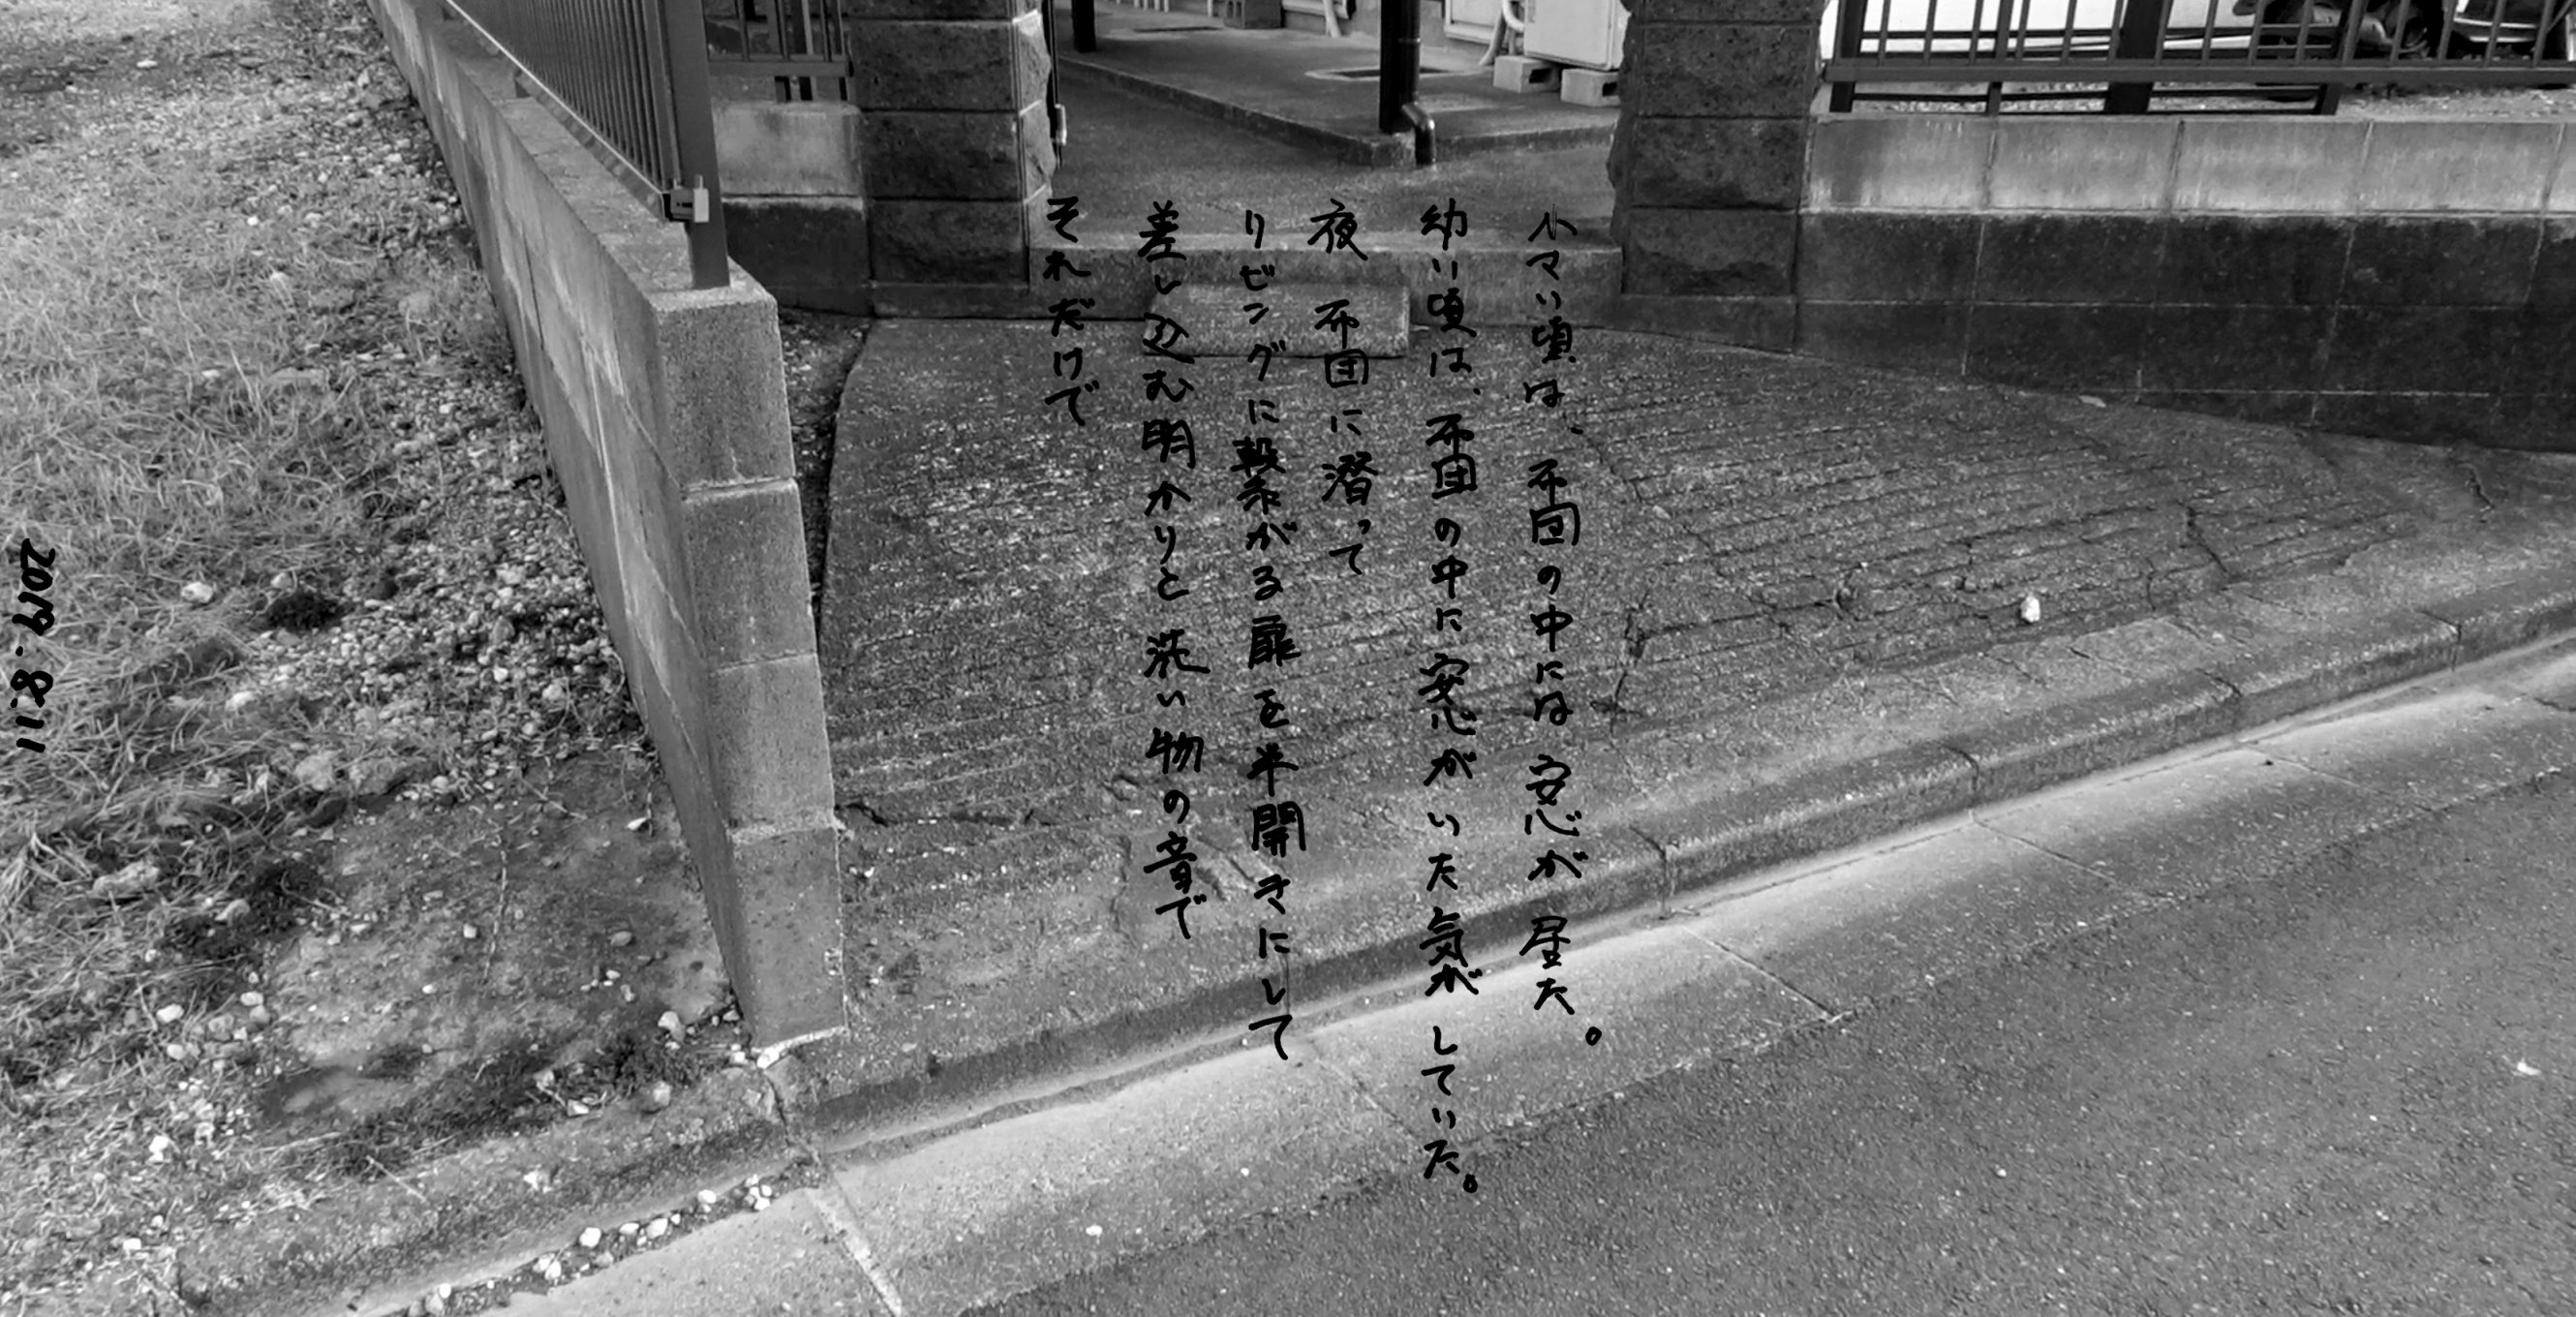 小マい頃は、布団の中には安心が居た。
幼い頃は、布団の中に安心がいた気がしていた。
夜 布団に潜って
リビングに繋がる扉を半開きにして
差し込む明かりと洗い物の音で
それだけで
2019.8.11